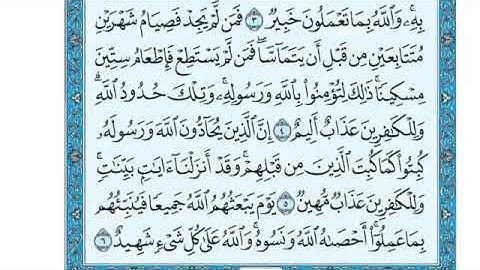 بِهِۦۚ وَٱللَّهُ بِمَا تَعۡمَلُونَ خَبِيرٞ ٣ فَمَن لَّمۡ يَجِدۡ فَصِيَامُ شَهۡرَيۡنِ
مُتَتَابِعَيۡنِ مِن قَبۡلِ أَن يَتَمَآسَّاۖ فَمَن لَّمۡ يَسۡتَطِعۡ فَإِطۡعَامُ سِتِّينَ
مِسۡكِينٗاۚ ذَٰلِكَ لِتُؤۡمِنُواْ بِٱللَّهِ وَرَسُولِهِۦۚ وَتِلۡكَ حُدُودُ ٱللَّهِۗ
وَلِلۡكَٰفِرِينَ عَذَابٌ أَلِيمٌ ٤ إِنَّ ٱلَّذِينَ يُحَآدُّونَ ٱللَّهَ وَرَسُولَهُۥ
كُبِتُواْ كَمَا كُبِتَ ٱلَّذِينَ مِن قَبۡلِهِمۡۚ وَقَدۡ أَنزَلۡنَآ ءَايَٰتِۭ بَيِّنَٰتٖۚ
وَلِلۡكَٰفِرِينَ عَذَابٞ مُّهِينٞ ٥ يَوۡمَ يَبۡعَثُهُمُ ٱللَّهُ جَمِيعٗا فَيُنَبِّئُهُم
بِمَا عَمِلُوٓاْۚ أَحۡصَىٰهُ ٱللَّهُ وَنَسُوهُۚ وَٱللَّهُ عَلَىٰ كُلِّ شَيۡءٖ شَهِيدٌ ٦